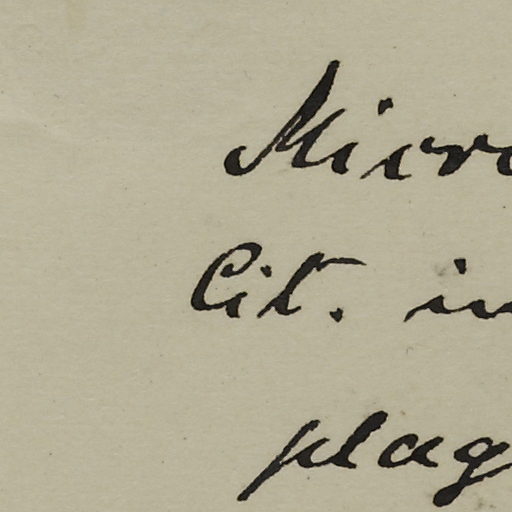 Micro
Cit. in
plag